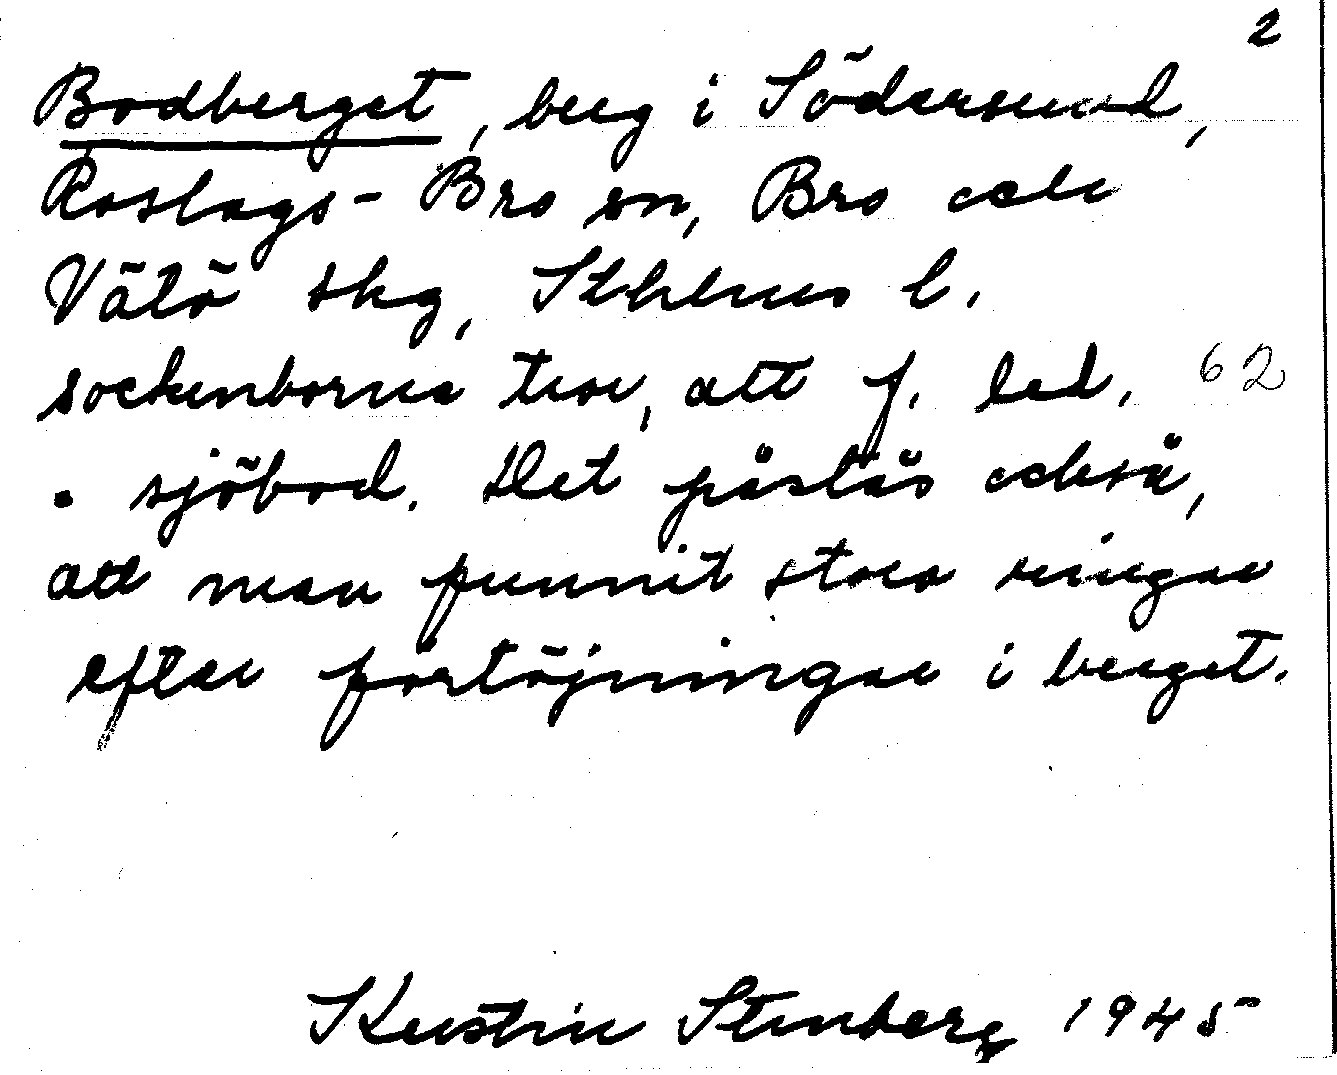 2
Bodberget, berg i Södersund,
Roslags-Bro sn, Bro och
Vätö skg, Sthlms l.
sockenborna tror, att f. led. 62
• sjöbod. Det påstås också,
att man funnit stora ringar
efter förtöjningar i berget.
Kerstin Stenberg 1945